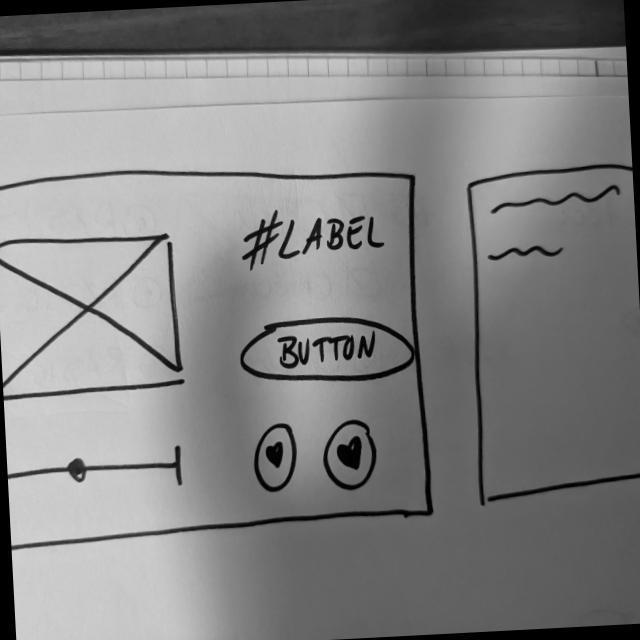 #LABEL
BUTTON